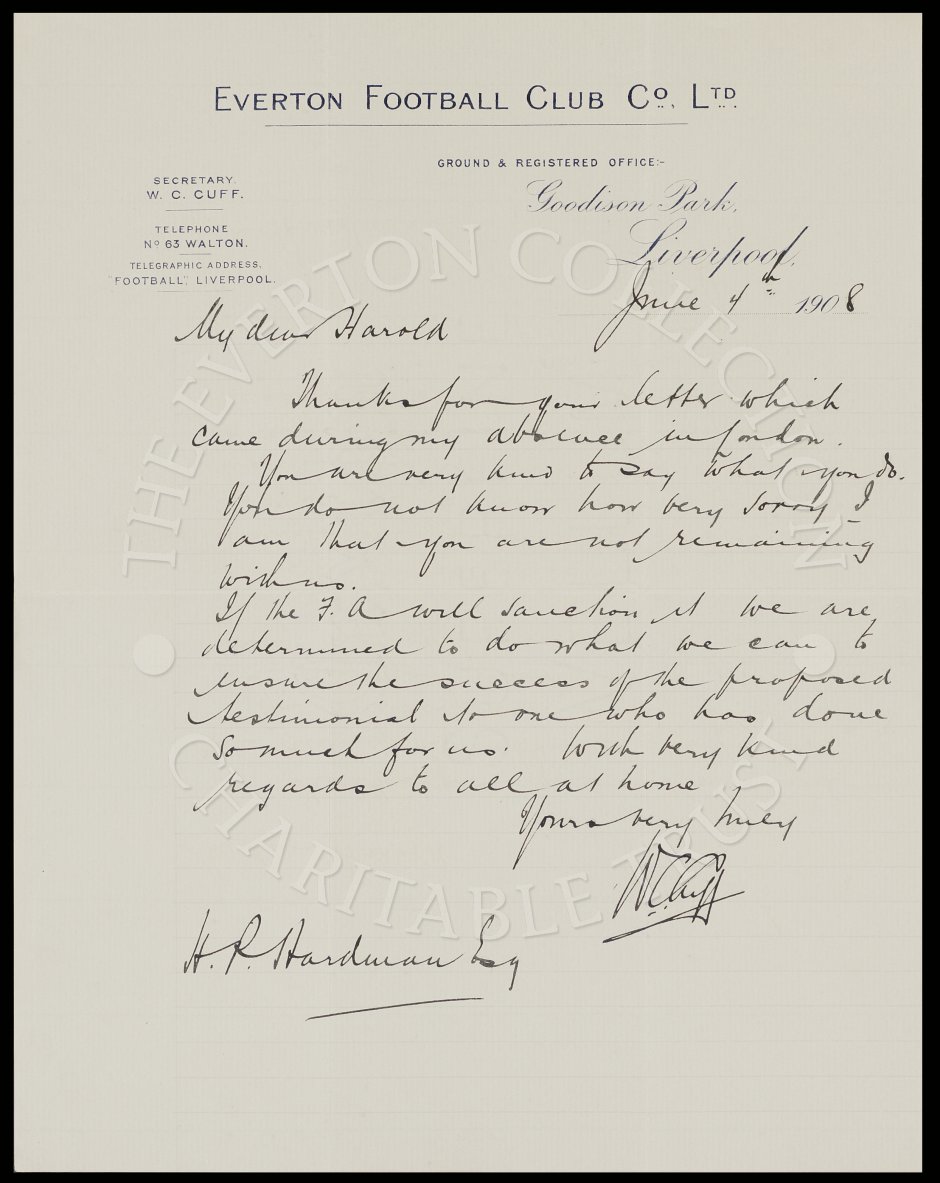 EVERTON FOOTBALL CLUB CO. LTD.
GROUND & REGISTERED OFFICE:-
Goodison Park,
Liverpool,
SECRETARY.
W. C. CUFF.
TELEPHONE
No 63 WALTON.
TELEGRAPHIC ADDRESS.
"FOOTBALL", LIVERPOOL.
June 4th 1908
My dear Harold
Thanks for your letter which
came during my absence in London.
You are very kind to say what you do.
You do not know how very sorry I
am that you are not remaining
with us.
If the F.A will sanction it we are
determined to do what we can to
ensure the success of the proposed
testimonial to one who has done
so much for us. With very kind
regards to all at home
Yours very truly
W.C. Cuff
H. P. Hardman Esq
THE EVERTON COLLECTION
CHARITABLE TRUST